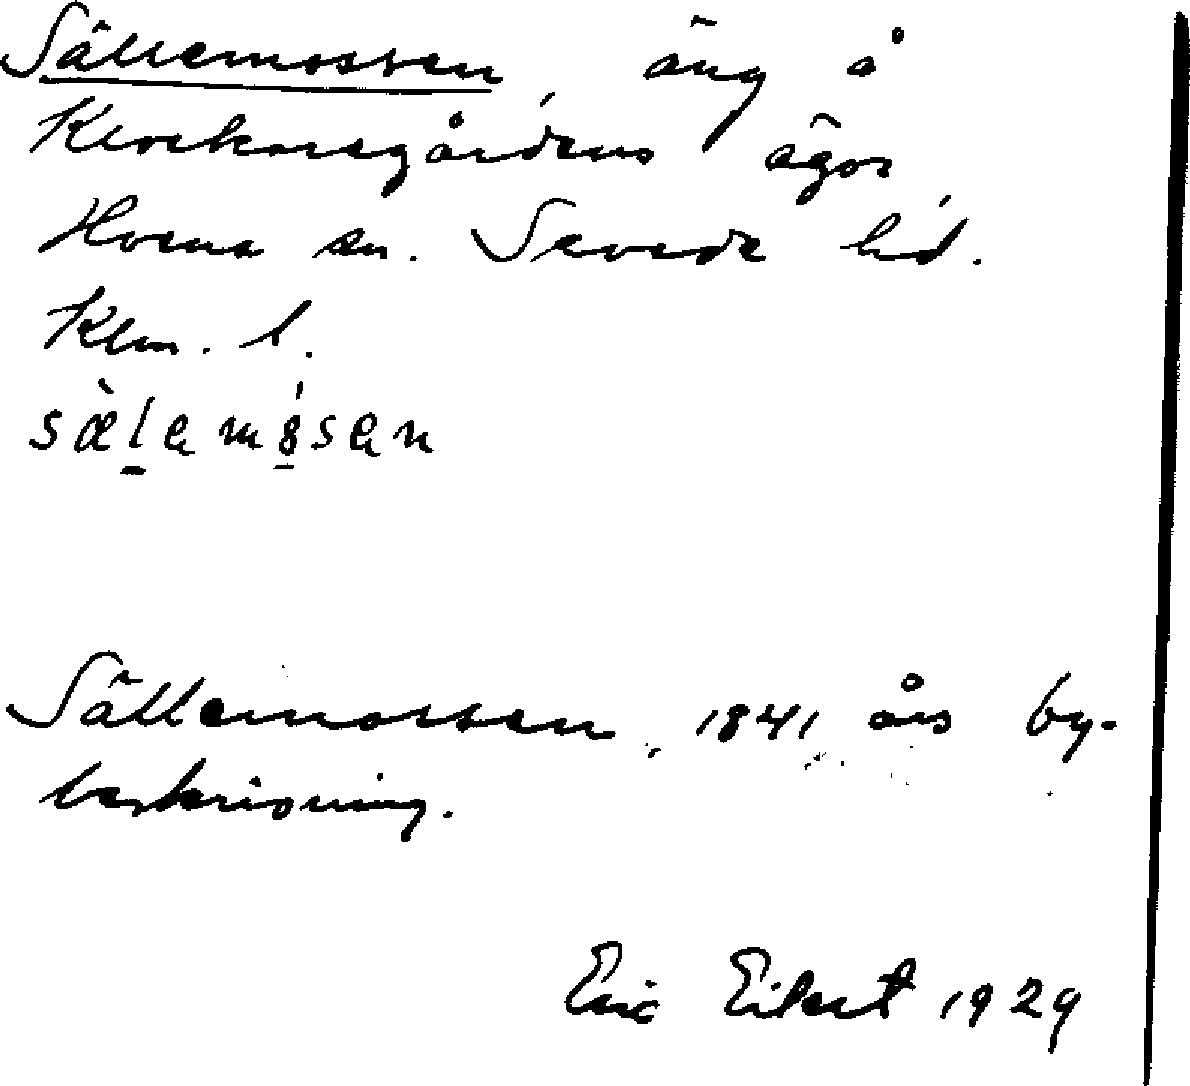 Sällemossen, äng å
Klockaregårdens ägor
Horna sn. Sevede hd.
Klm. l.
sälemosen
Sällemossen, 1841 års by-
beskrivning.
Eric Eilert 1929